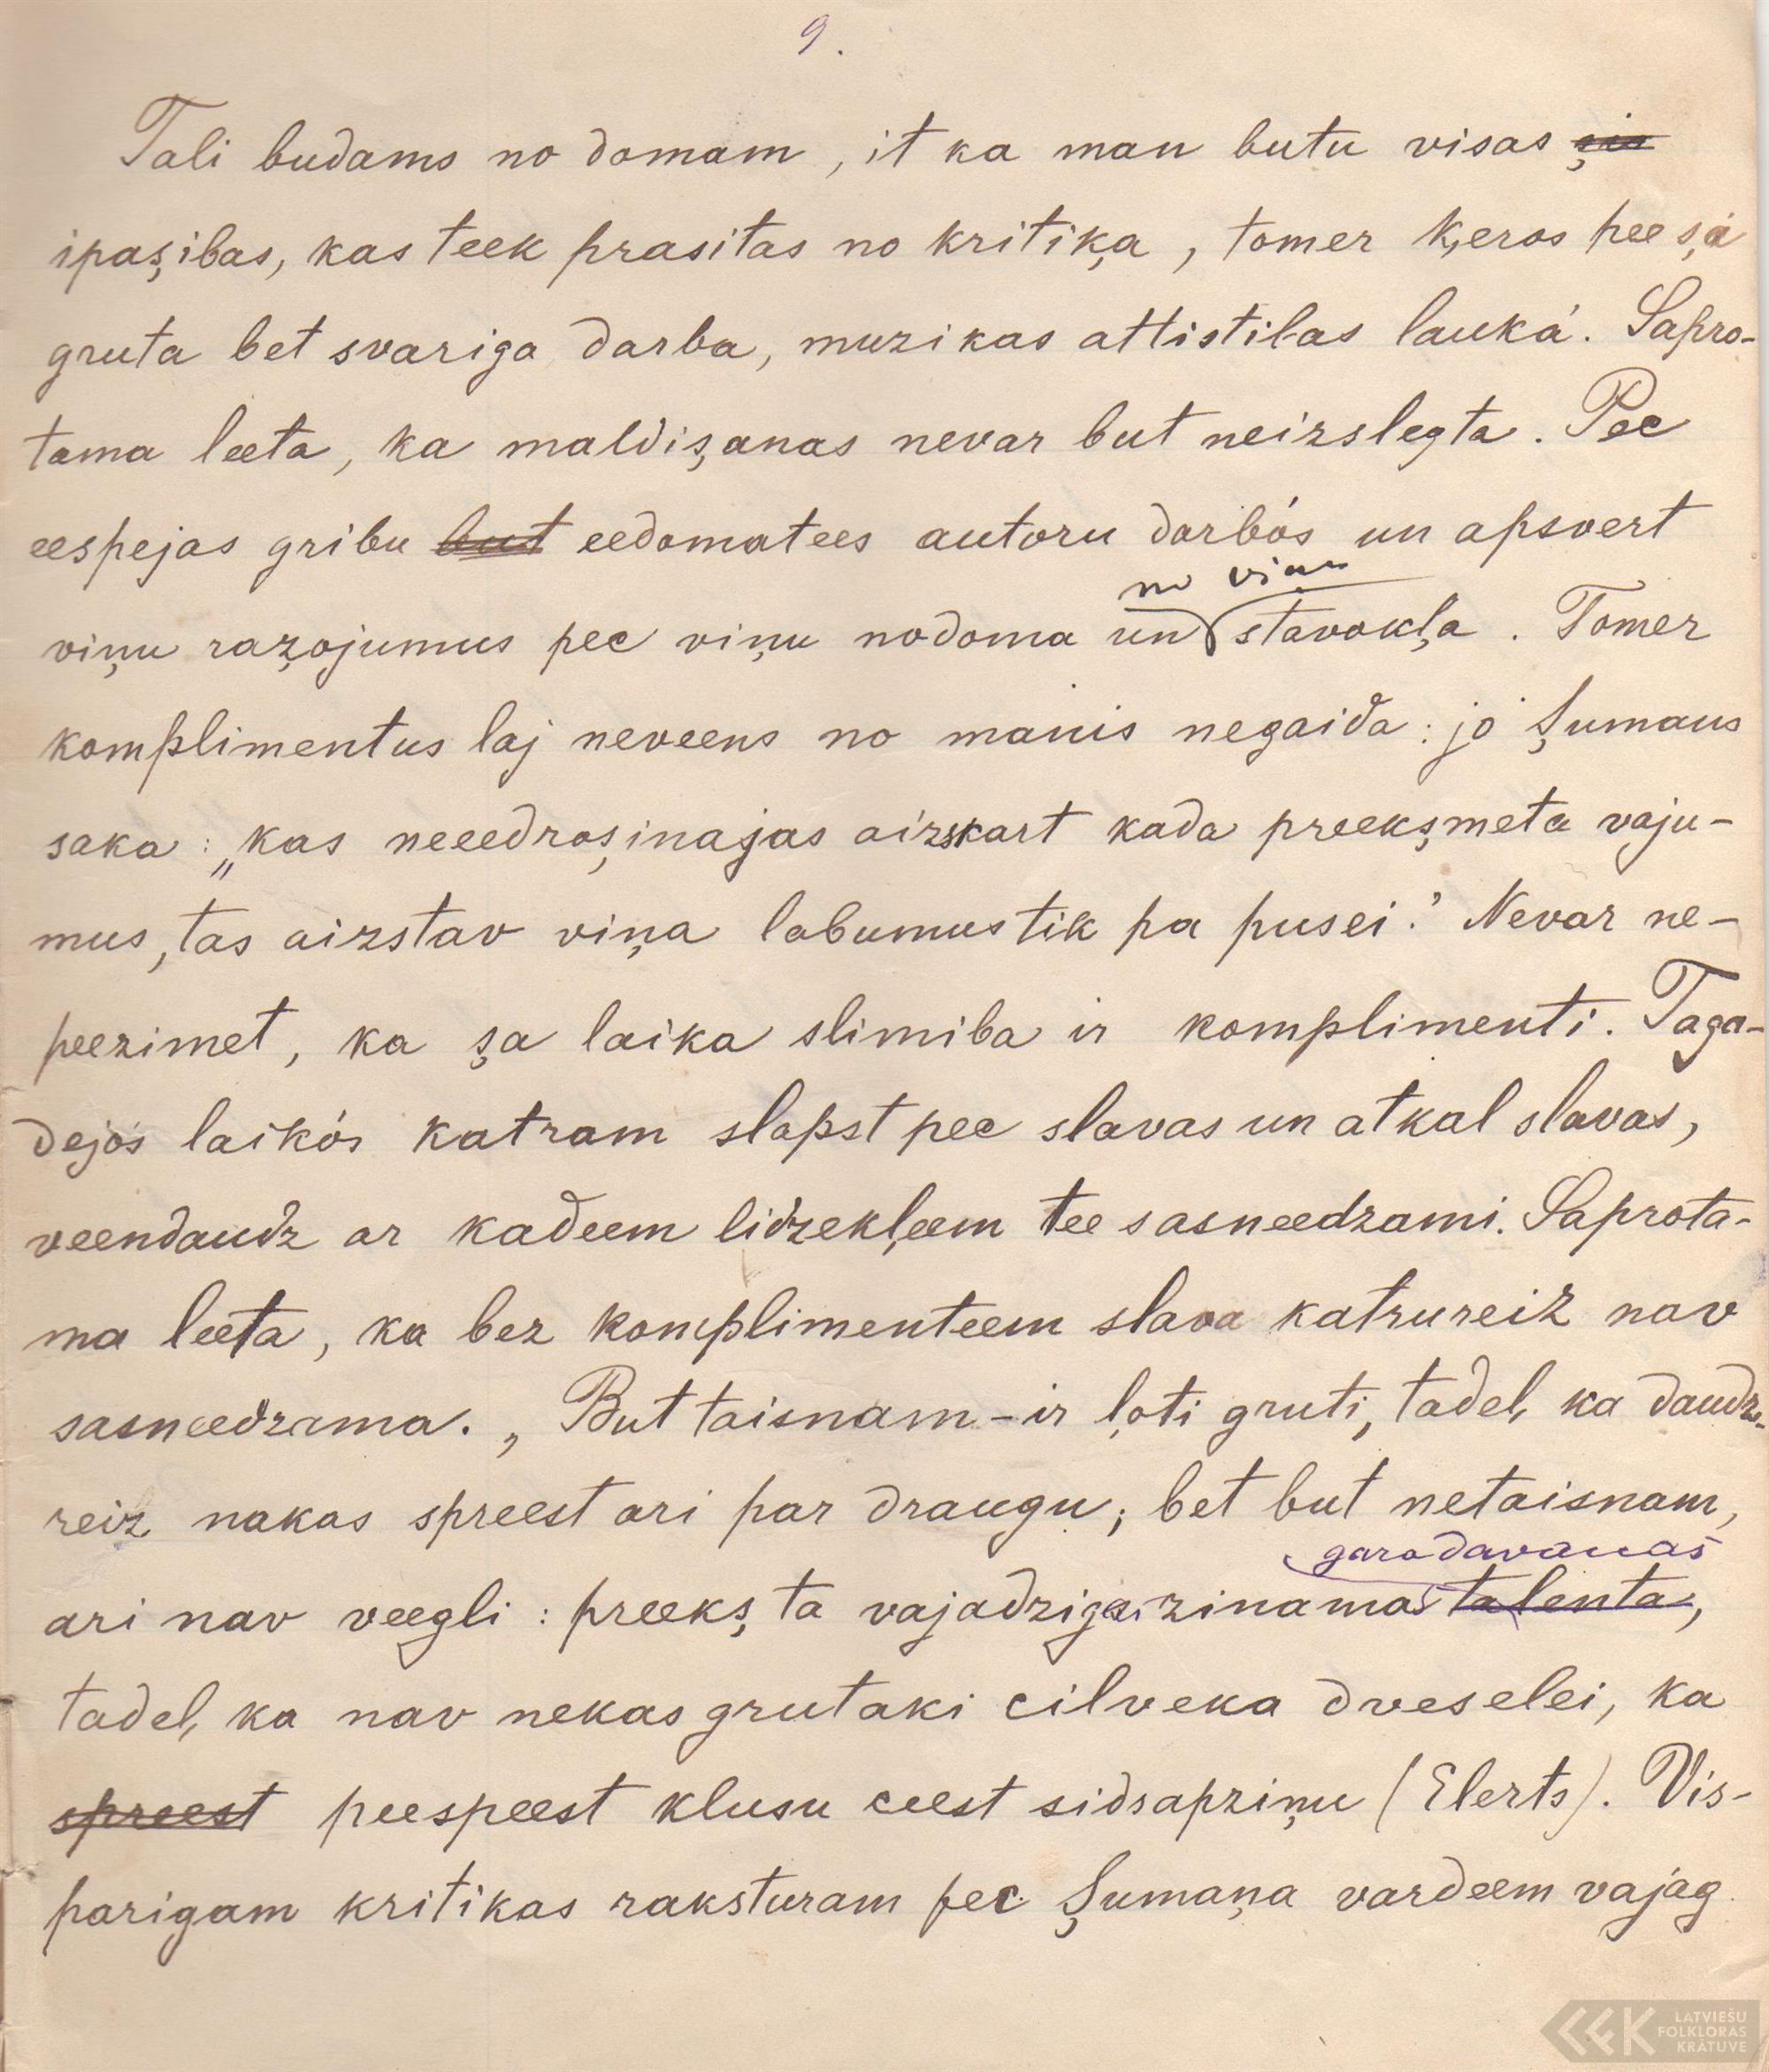 9.
Tali budams no domam, it ka man butu visas
ipaşibas, kas teek prasitas no kritiķa, tomer ķeros pee şá
gruta bet svariga darba, muzikas attistibas lauká. Sapro-
tama leeta, ka maldişanas nevar but neizslegta. Pec
eespejas gribu but eedomatees autoru darbós un apsvert
no viņu
viņu raz̧ojumus pec viņu nodoma un stavokļa. Tomer
komplimentus laj neveens no manis negaida: jo Şumans
saka: „kas neeedroşinajas aizskart kada preekşmeta vaju-
mus, tas aizstav viņa labumus tik pa pusei." Nevar ne-
peezimet, ka şa laika slimiba ir komplimenti. Taga-
dejós laikós katram slapst pec slavas un atkal slavas,
veendaudz ar kadeem lidzekļeem tee sasneedzami. Saprota-
ma leeta, ka bez komplimenteem slava katrureiz nav
sasneedzama. „But taisnam - ir ļoti gruti, tadeļ ka daudz-
reiz nakas spreest ari par draugu; bet but netaisnam,
garadavanas
ari nav veegli: preekş ta vajadzigas zinamas talenta,
tadeļ ka nav nekas grutaki cilveka dveselei, ka
spreest peespeest klusu ceest sidsapziņu (Elerts). Vis-
parigam kritikas raksturam pec Şumaņa vardeem vajag
LATVIEŠU
FOLKLORAS
KRĀTUVE